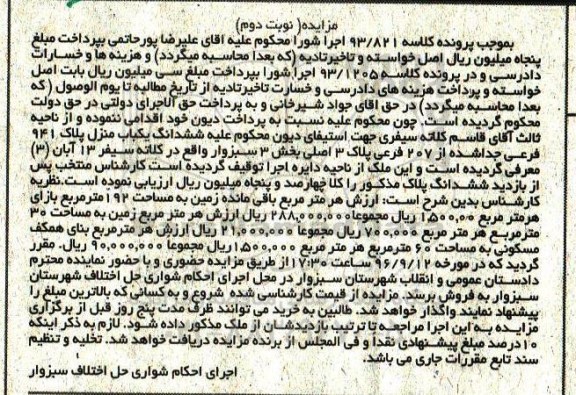 مزایده( نوبت دوم)
بموجب پرونده کلاسه ۹۳/۸۲۱ اجرا شورا محکوم علیه آقای علیرضا پورحاتمی بپرداخت مبلغ
پنجاه میلیون ریال اصل خواسته و تاخیرتادیه (که بعدا محاسبه میگردد) و هزینه ها و خسارات
دادرسی و در پرونده کلاسه ۹۳/۱۲۰۵ اجرا شورا بپرداخت مبلغ سی میلیون ریال بابت اصل
خواسته و پرداخت هزینه های دادرسی و خسارت تاخیرتادیه از تاریخ مطالبه تا یوم الوصول ( که
بعدا محاسبه میگردد) در حق آقای جواد شیرخانی و به پرداخت حق الاجرای دولتی در حق دولت
محکوم گردیده است. چون محکوم علیه نسبت به پرداخت دیون خود اقدامی ننموده و از ناحیه
ثالث آقای قاسم کلاته سیفری جهت استیفای دیون محکوم علیه ششدانگ یکباب منزل پلاک ۹۴۱
فرعی جداشده از ۲۰۷ فرعی پلاک ۳ اصلی بخش ۳ سبزوار واقع در کلاته سیفر ۱۳ آبان (۳)
معرفی گردیده است و این ملک از ناحیه دایره اجرا توقیف گردیده است کارشناس منتخب پس
از بازدید ششدانگ پلاک مذکور را کلا چهارصد و پنجاه میلیون ریال ارزیابی نموده است.نظریه
کارشناس بدین شرح است: ارزش هر متر مربع باقی مانده زمین به مساحت ۱۹۲مترمربع بازای
هرمتر مربع ۱,۵۰۰,۰۰ ریال مجموعا ۲۸۸,۰۰۰,۰۰۰ ریال ارزش هر متر مربع زمین به مساحت ۳۰
مترمربع هر متر مربع ۷۰۰,۰۰۰ ریال مجموعا ۲۱,۰۰۰,۰۰۰ ریال ارزش هر مترمربع بنای همکف
مسکونی به مساحت ۶۰ مترمربع هر متر مربع ۱,۵۰۰,۰۰۰ریال مجموعا ۹۰,۰۰۰,۰۰۰ ریال. مقرر
گردید که در مورخه ۹۶/۹/۱۲ ساعت ۱۷:۳۰ از طریق مزایده حضوری و با حضور نماینده محترم
دادستان عمومی و انقلاب شهرستان سبزوار در محل اجرای احکام شواری حل اختلاف شهرستان
سبزوار به فروش برسد. مزایده از قیمت کارشناسی شده شروع و به کسانی که بالاترین مبلغ را
پیشنهاد نمایند واگذار خواهد شد. طالبین به خرید می توانند ظرف مدت پنج روز قبل از برگزاری
مزایده به این اجرا مراجعه تا ترتیب بازدیدشان از ملک مذکور داده شود. لازم به ذکر اینکه
۱۰درصد مبلغ پیشنهادی نقدا و فی المجلس از برنده مزایده دریافت خواهد شد. تخلیه و تنظیم
سند تابع مقررات جاری می باشد.
اجرای احکام شواری حل اختلاف سبزوار